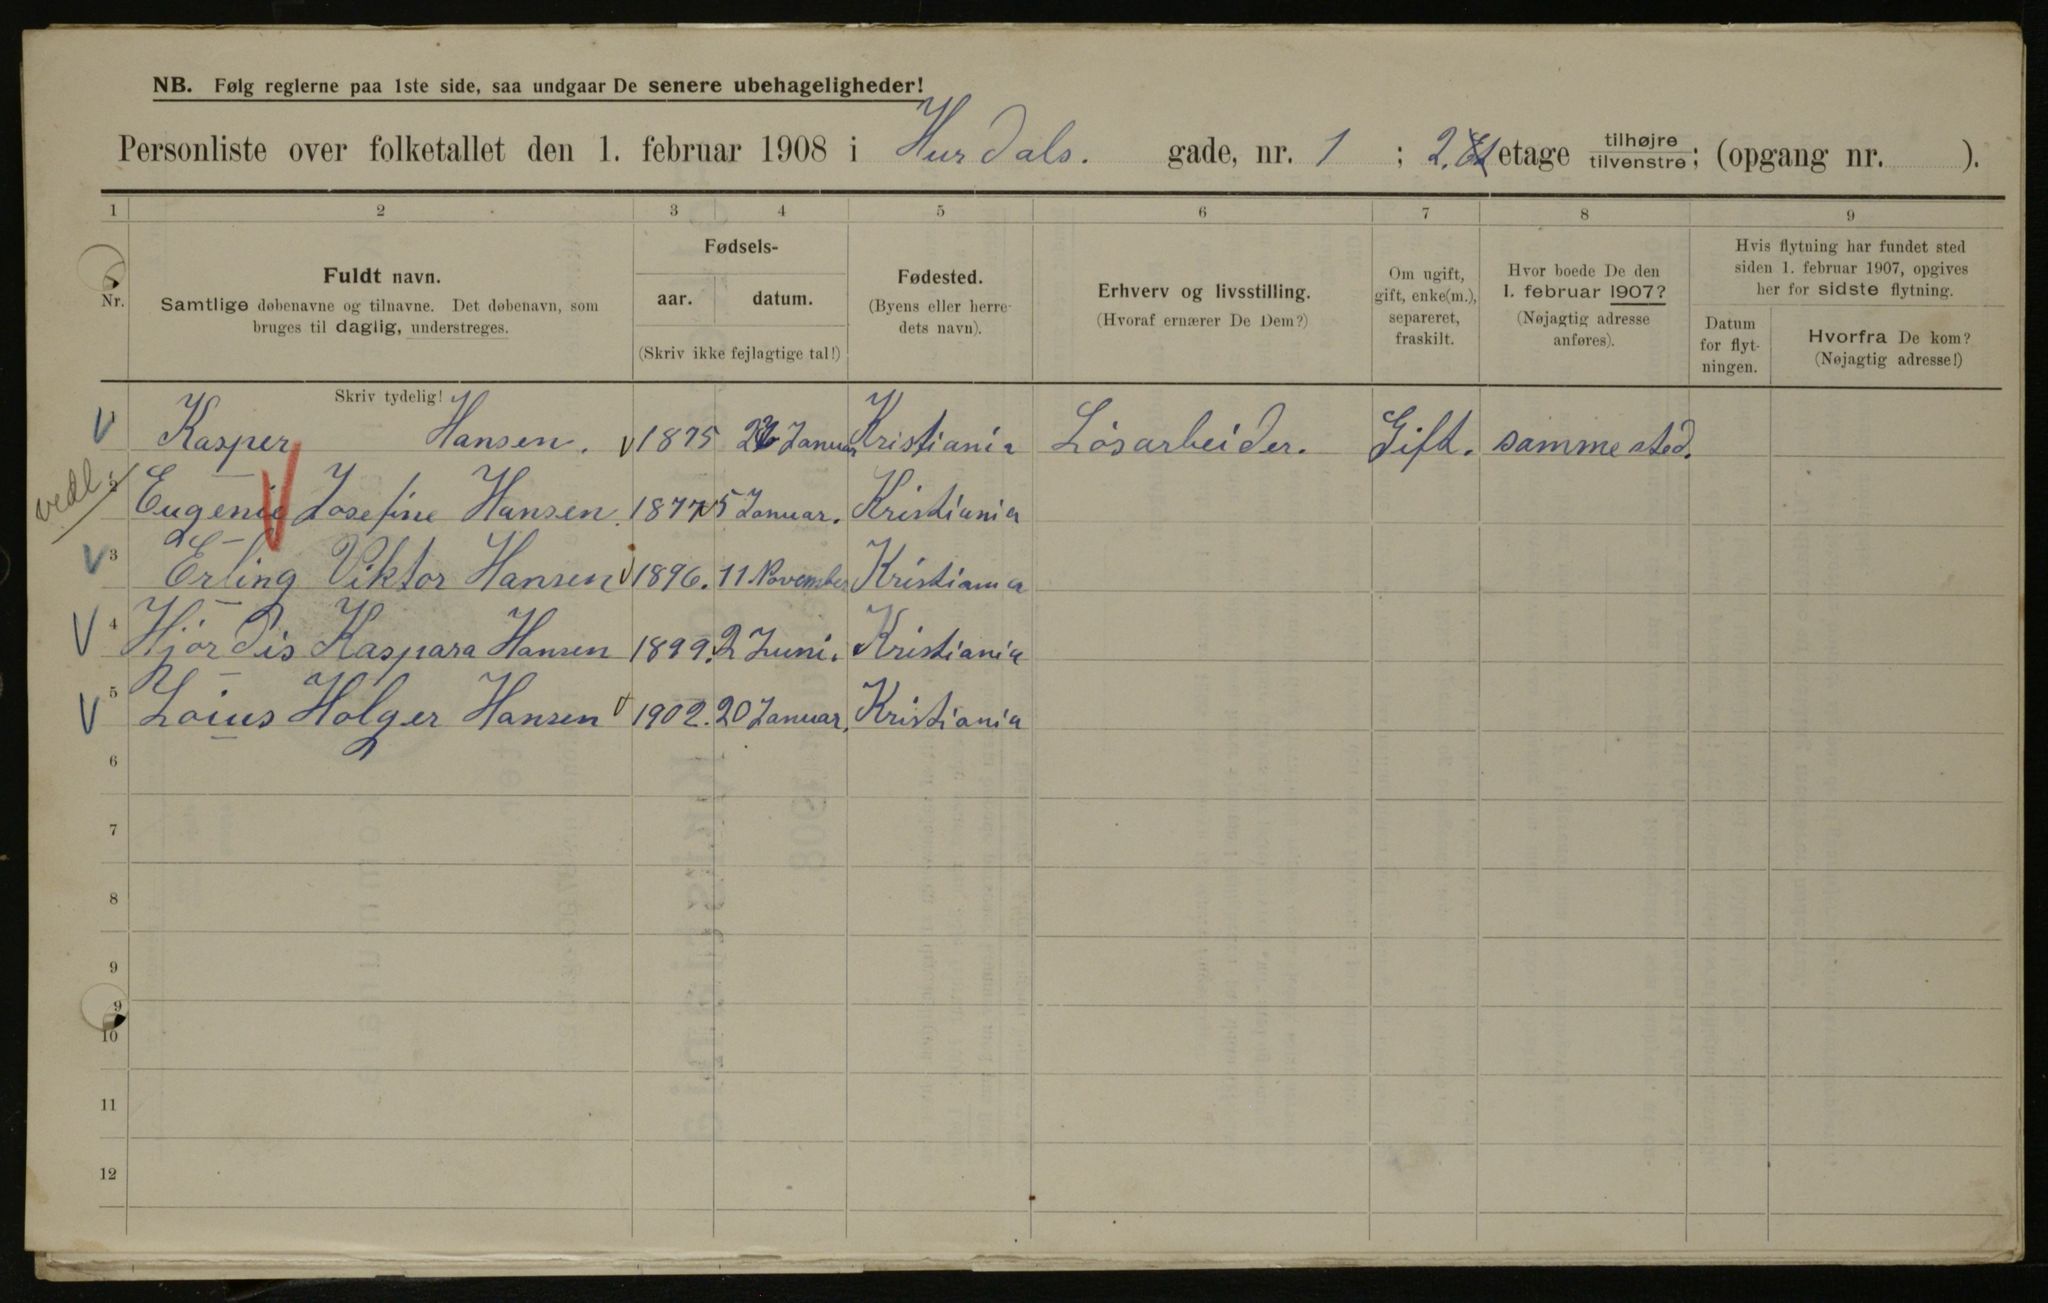 NB. Følg reglerne paa 1ste side, saa undgaar De senere ubehageligheder!
Personliste over folketallet den 1. februar 1908 i Hurdals. gade, nr. 1 ; 2. etage tilhøjre tilvenstre; (opgang nr. ).
1 2 3 4 5 6 7 8 9
Nr.
Fuldt navn.
Samtlige døbenavne og tilnavne. Det døbenavn, som
bruges til daglig, understreges.
Skriv tydelig!
Fødsels-
aar. datum.
(Skriv ikke fejlagtige tal!)
Fødested.
(Byens eller herre-
dets navn).
Erhverv og livsstilling.
(Hvoraf ernærer De Dem?)
Om ugift,
gift, enke(m.),
separeret,
fraskilt.
Hvor boede De den
1. februar 1907?
(Nøjagtig adresse
anføres).
Hvis flytning har fundet sted
siden 1. februar 1907, opgives
her for sidste flytning.
Datum
for flyt-
ningen.
Hvorfra De kom?
(Nøjagtig adresse!)
Kasper Hansen. 1875 Januar Kristiania Løsarbeider. Gift. samme sted.
vedl.
2 Eugenie Josefine Hansen. 1877 5 Januar. Kristiania
3 Erling Viktor Hansen 1896. 11 November Kristiania
4 Hjørdis Kaspara Hansen 1899. 2 Juni. Kristiania
5 Loius Holger Hansen 1902. 20 Januar. Kristiania
6
7
8
9
9
10
11
12